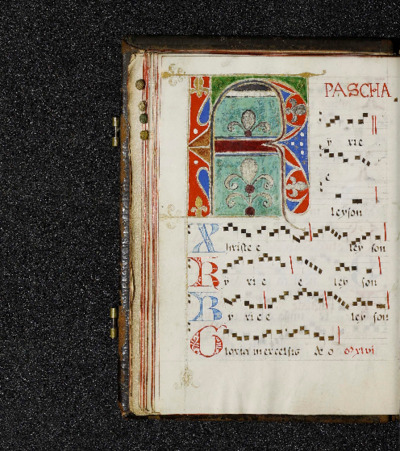 PASCHA
K y rie
e
leyson
Xpriste e ley son
K y ri e e ley son
K y ri e e ley son
Gloria in excelsis de o